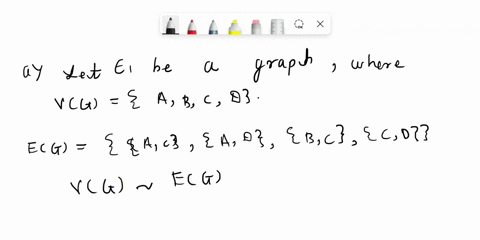 ay Let G1 be a graph, where
V(G) = { A, B, C, D}.
E(G) = { {A, C}, {A, D}, {B, C}, {C, D}}
V(G) ~ E(G)